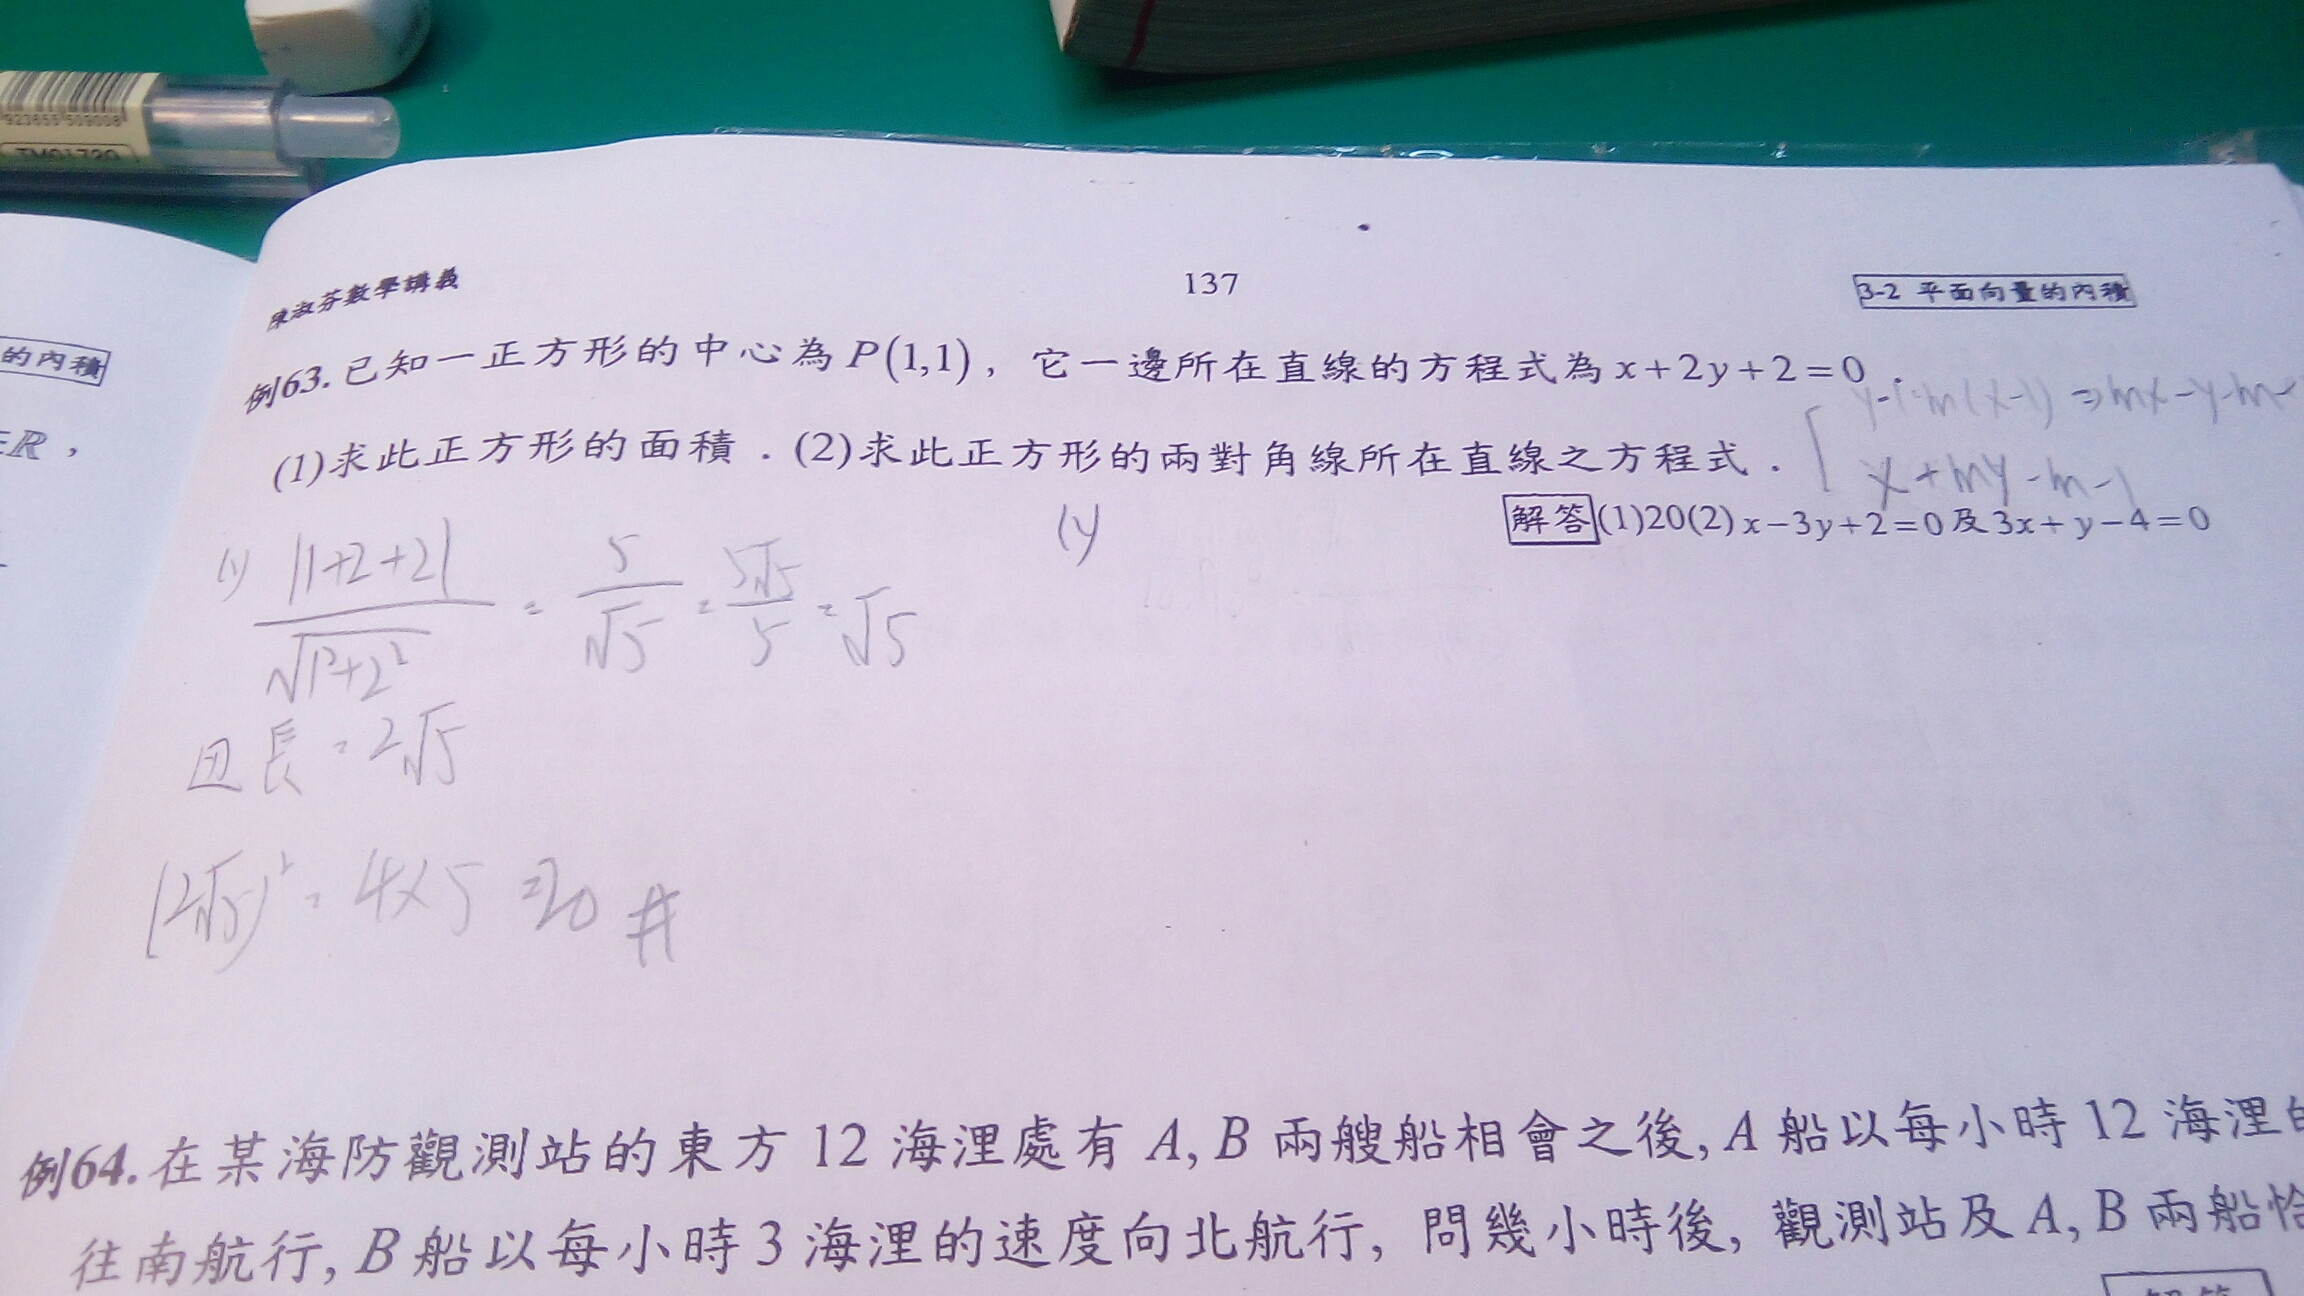 923655 509008
TM01720
的內積
ER，
陳淑芬數學講義
137
3-2 平面向量的內積
例63. 已知一正方形的中心為 P(1,1)，它一邊所在直線的方程式為 x+2y+2=0．
y-1=m(x-1) ⇒ mx-y-m
(1)求此正方形的面積．(2)求此正方形的兩對角線所在直線之方程式．
x+my-m-1
解答 (1)20(2) x-3y+2=0 及 3x+y-4=0
|1+2+2| / √(1²+2²) = 5/√5 = 5√5/5 = √5
長=2√5
(2√5)²=4×5=20 #
例64. 在某海防觀測站的東方 12 海浬處有 A, B 兩艘船相會之後, A 船以每小時 12 海浬的
往南航行, B 船以每小時 3 海浬的速度向北航行, 問幾小時後, 觀測站及 A, B 兩船恰
解答